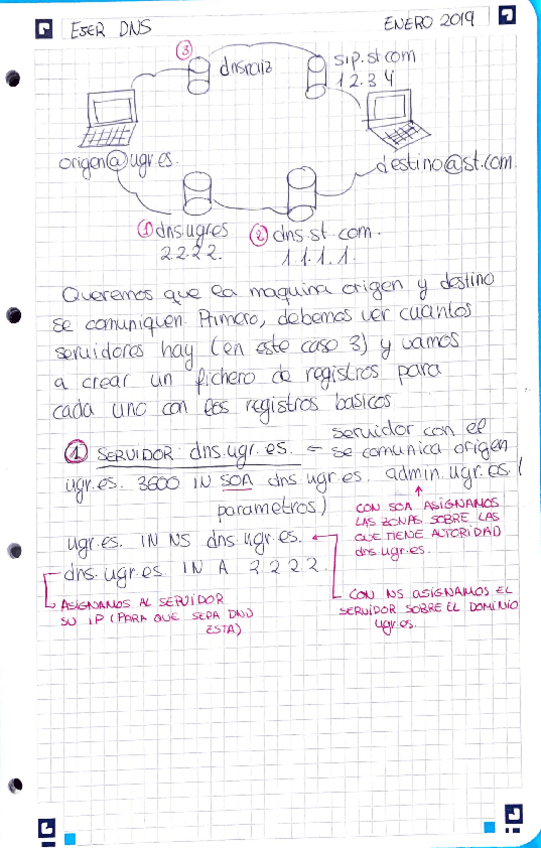 EJER DNS
ENERO 2019
③
dnsraiz
sip.st.com
1.2.3.4
origen@ugr.es.
destino@st.com.
① dns.ugr.es
2.2.2.2.
② dns.st.com.
1.1.1.1.
Queremos que la maquina origen y destino
se comuniquen. Primero, debemos ver cuantos
servidores hay (en este caso 3) y vamos
a crear un fichero de registros para
cada uno con los registros basicos
① SERVIDOR dns.ugr.es. = servidor con el
se comunica origen
ugr.es. 3600 IN SOA dns.ugr.es. admin.ugr.es. (
parametros)
CON SOA ASIGNAMOS
LAS ZONAS SOBRE LAS
QUE TIENE AUTORIDAD
dns.ugr.es.
ugr.es. IN NS dns.ugr.es.
dns.ugr.es IN A 2.2.2.2.
ASIGNAMOS AL SERVIDOR
SU IP (PARA QUE SEPA DND
ESTA)
CON NS ASIGNAMOS EL
SERVIDOR SOBRE EL DOMINIO
ugr.es.